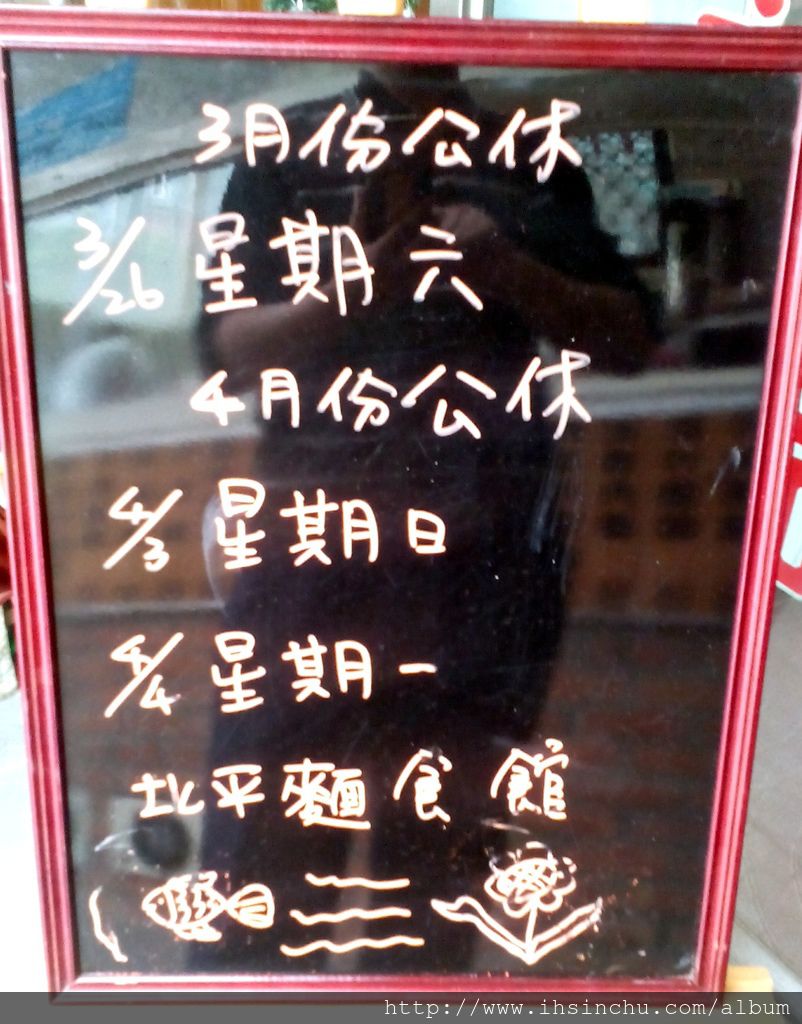 3月份公休
3/26 星期六
4月份公休
4/3 星期日
4/4 星期一
北平麵食館
http://www.ihsinchu.com/album